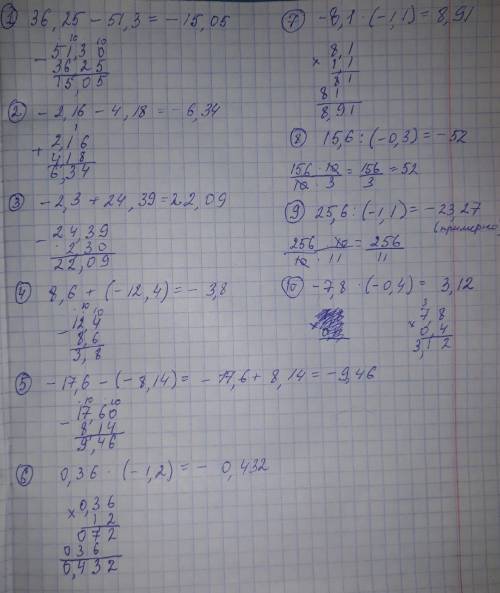 ① 36,25 − 51,3 = − 15,05
− 51,30
36,25
15,05
② − 2,16 − 4,18 = − 6,34
+ 2,16
4,18
6,34
③ − 2,3 + 24,39 = 22,09
− 24,39
2 30
22,09
④ 8,6 + (− 12,4) = − 3,8
− 12,4
8,6
3,8
⑤ − 17,6 − (− 8,14) = − 17,6 + 8,14 = − 9,46
− 17,60
8,14
9,46
⑥ 0,36 · (− 1,2) = − 0,432
× 0,36
1 2
0 7 2
0 3 6
0,4 3 2
⑦ − 8,1 · (− 1,1) = 8,91
× 8,1
1,1
8 1
8 1
8,9 1
⑧ 15,6 : (− 0,3) = − 52
156 · 10 / 10 · 3 = 156 / 3 = 52
⑨ 25,6 : (− 1,1) = − 23,27
(примерно
256 · 10 / 10 · 11 = 256 / 11
⑩ − 7,8 · (− 0,4) = 3,12
3
× 7,8
0,4
3,1 2